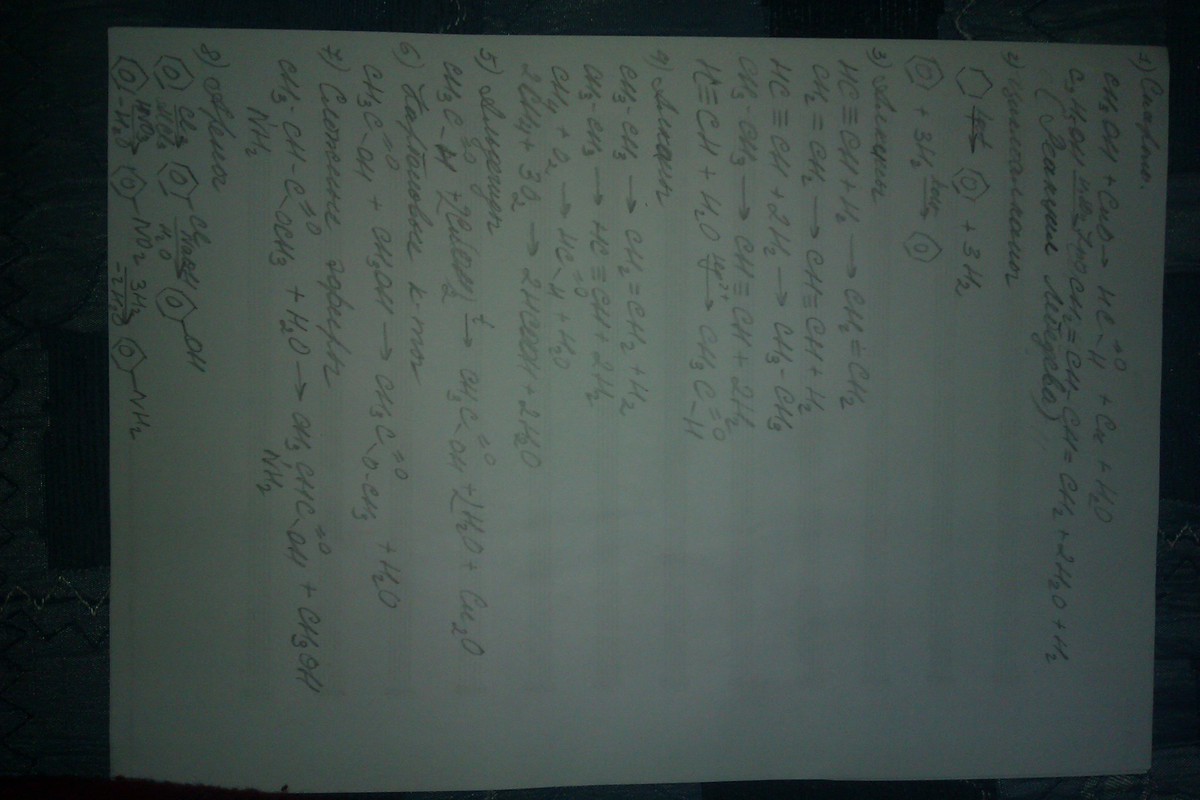 1) Спирты.
CH₃OH + CuO → HC=O-H + Cu + H₂O
C₂H₅OH → CH₂=CH-CH=CH₂ + 2H₂O + H₂
(Реакция Лебедева)
2) Циклоалканы
kat + 3H₂
+ 3H₂ kat →
3) Алкины
HC≡CH + H₂ → CH₂=CH₂
CH₂=CH₂ → CH≡CH + H₂
HC≡CH + 2H₂ → CH₃-CH₃
CH₃-CH₃ → CH≡CH + 2H₂
HC≡CH + H₂O Hg²⁺ → CH₃C=O-H
4) Алканы
CH₃-CH₃ → CH₂=CH₂ + H₂
CH₃-CH₃ → HC≡CH + 2H₂
CH₄ + O₂ → HC=O-H + H₂O
2CH₄ + 3O₂ → 2HCOOH + 2H₂O
5) Альдегиды
CH₃C=O-H + 2Cu(OH)₂ t → CH₃C=O-OH + 2H₂O + Cu₂O
6) Карбоновые к-ты
CH₃C=O-OH + CH₃OH → CH₃C=O-O-CH₃ + H₂O
7) Сложные эфиры
CH₃CH-C=O-OCH₃ + H₂O → CH₃CHC=O-OH + CH₃OH
NH₂ NH₂
8) Арены
Cl₂ Cl NaOH H₂O OH
HNO₃ -H₂O NO₂ 3H₂ -2H₂O NH₂